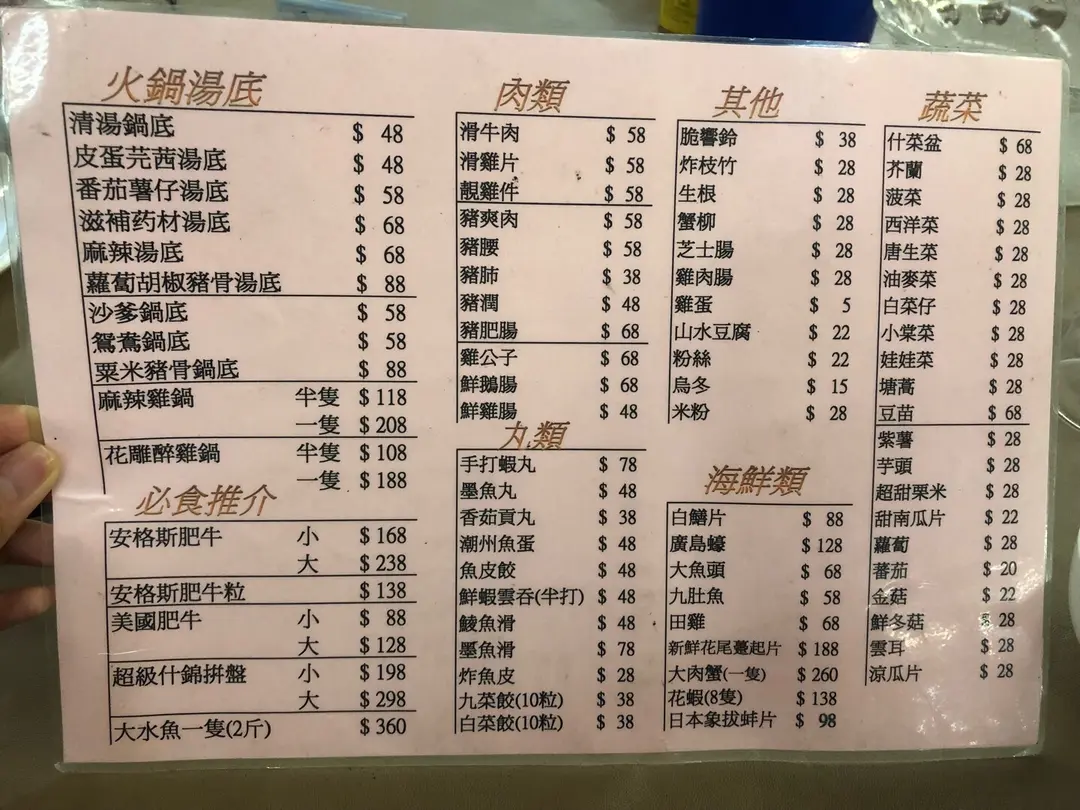 火鍋湯底
清湯鍋底 $ 48
皮蛋芫茜湯底 $ 48
番茄薯仔湯底 $ 58
滋補药材湯底 $ 68
麻辣湯底 $ 68
蘿蔔胡椒豬骨湯底 $ 88
沙爹鍋底 $ 58
鴛鴦鍋底 $ 58
粟米豬骨鍋底 $ 88
麻辣雞鍋 半隻 $ 118
一隻 $ 208
花雕醉雞鍋 半隻 $ 108
一隻 $ 188
必食推介
安格斯肥牛 小 $ 168
大 $ 238
安格斯肥牛粒 $ 138
美國肥牛 小 $ 88
大 $ 128
超級什錦拼盤 小 $ 198
大 $ 298
大水魚一隻(2斤) $ 360
肉類
滑牛肉 $ 58
滑雞片 $ 58
靚雞件 $ 58
豬爽肉 $ 58
豬腰 $ 58
豬肺 $ 38
豬潤 $ 48
豬肥腸 $ 68
雞公子 $ 68
鮮鵝腸 $ 68
鮮雞腸 $ 48
丸類
手打蝦丸 $ 78
墨魚丸 $ 48
香茹貢丸 $ 38
潮州魚蛋 $ 48
魚皮餃 $ 48
鮮蝦雲吞(半打) $ 48
鯪魚滑 $ 48
墨魚滑 $ 78
炸魚皮 $ 28
九菜餃(10粒) $ 38
白菜餃(10粒) $ 38
其他
脆響鈴 $ 38
炸枝竹 $ 28
生根 $ 28
蟹柳 $ 28
芝士腸 $ 28
雞肉腸 $ 28
雞蛋 $ 5
山水豆腐 $ 22
粉絲 $ 22
烏冬 $ 15
米粉 $ 28
海鮮類
白鱔片 $ 88
廣島蠔 $ 128
大魚頭 $ 68
九肚魚 $ 58
田雞 $ 68
新鮮花尾躉起片 $ 188
大肉蟹(一隻) $ 260
花蝦(8隻) $ 138
日本象拔蚌片 $ 98
蔬菜
什菜盆 $ 68
芥蘭 $ 28
菠菜 $ 28
西洋菜 $ 28
唐生菜 $ 28
油麥菜 $ 28
白菜仔 $ 28
小棠菜 $ 28
娃娃菜 $ 28
塘蒿 $ 28
豆苗 $ 68
紫薯 $ 28
芋頭 $ 28
超甜栗米 $ 28
甜南瓜片 $ 22
蘿蔔 $ 28
蕃茄 $ 20
金菇 $ 22
鮮冬菇 $ 28
雲耳 $ 28
涼瓜片 $ 28